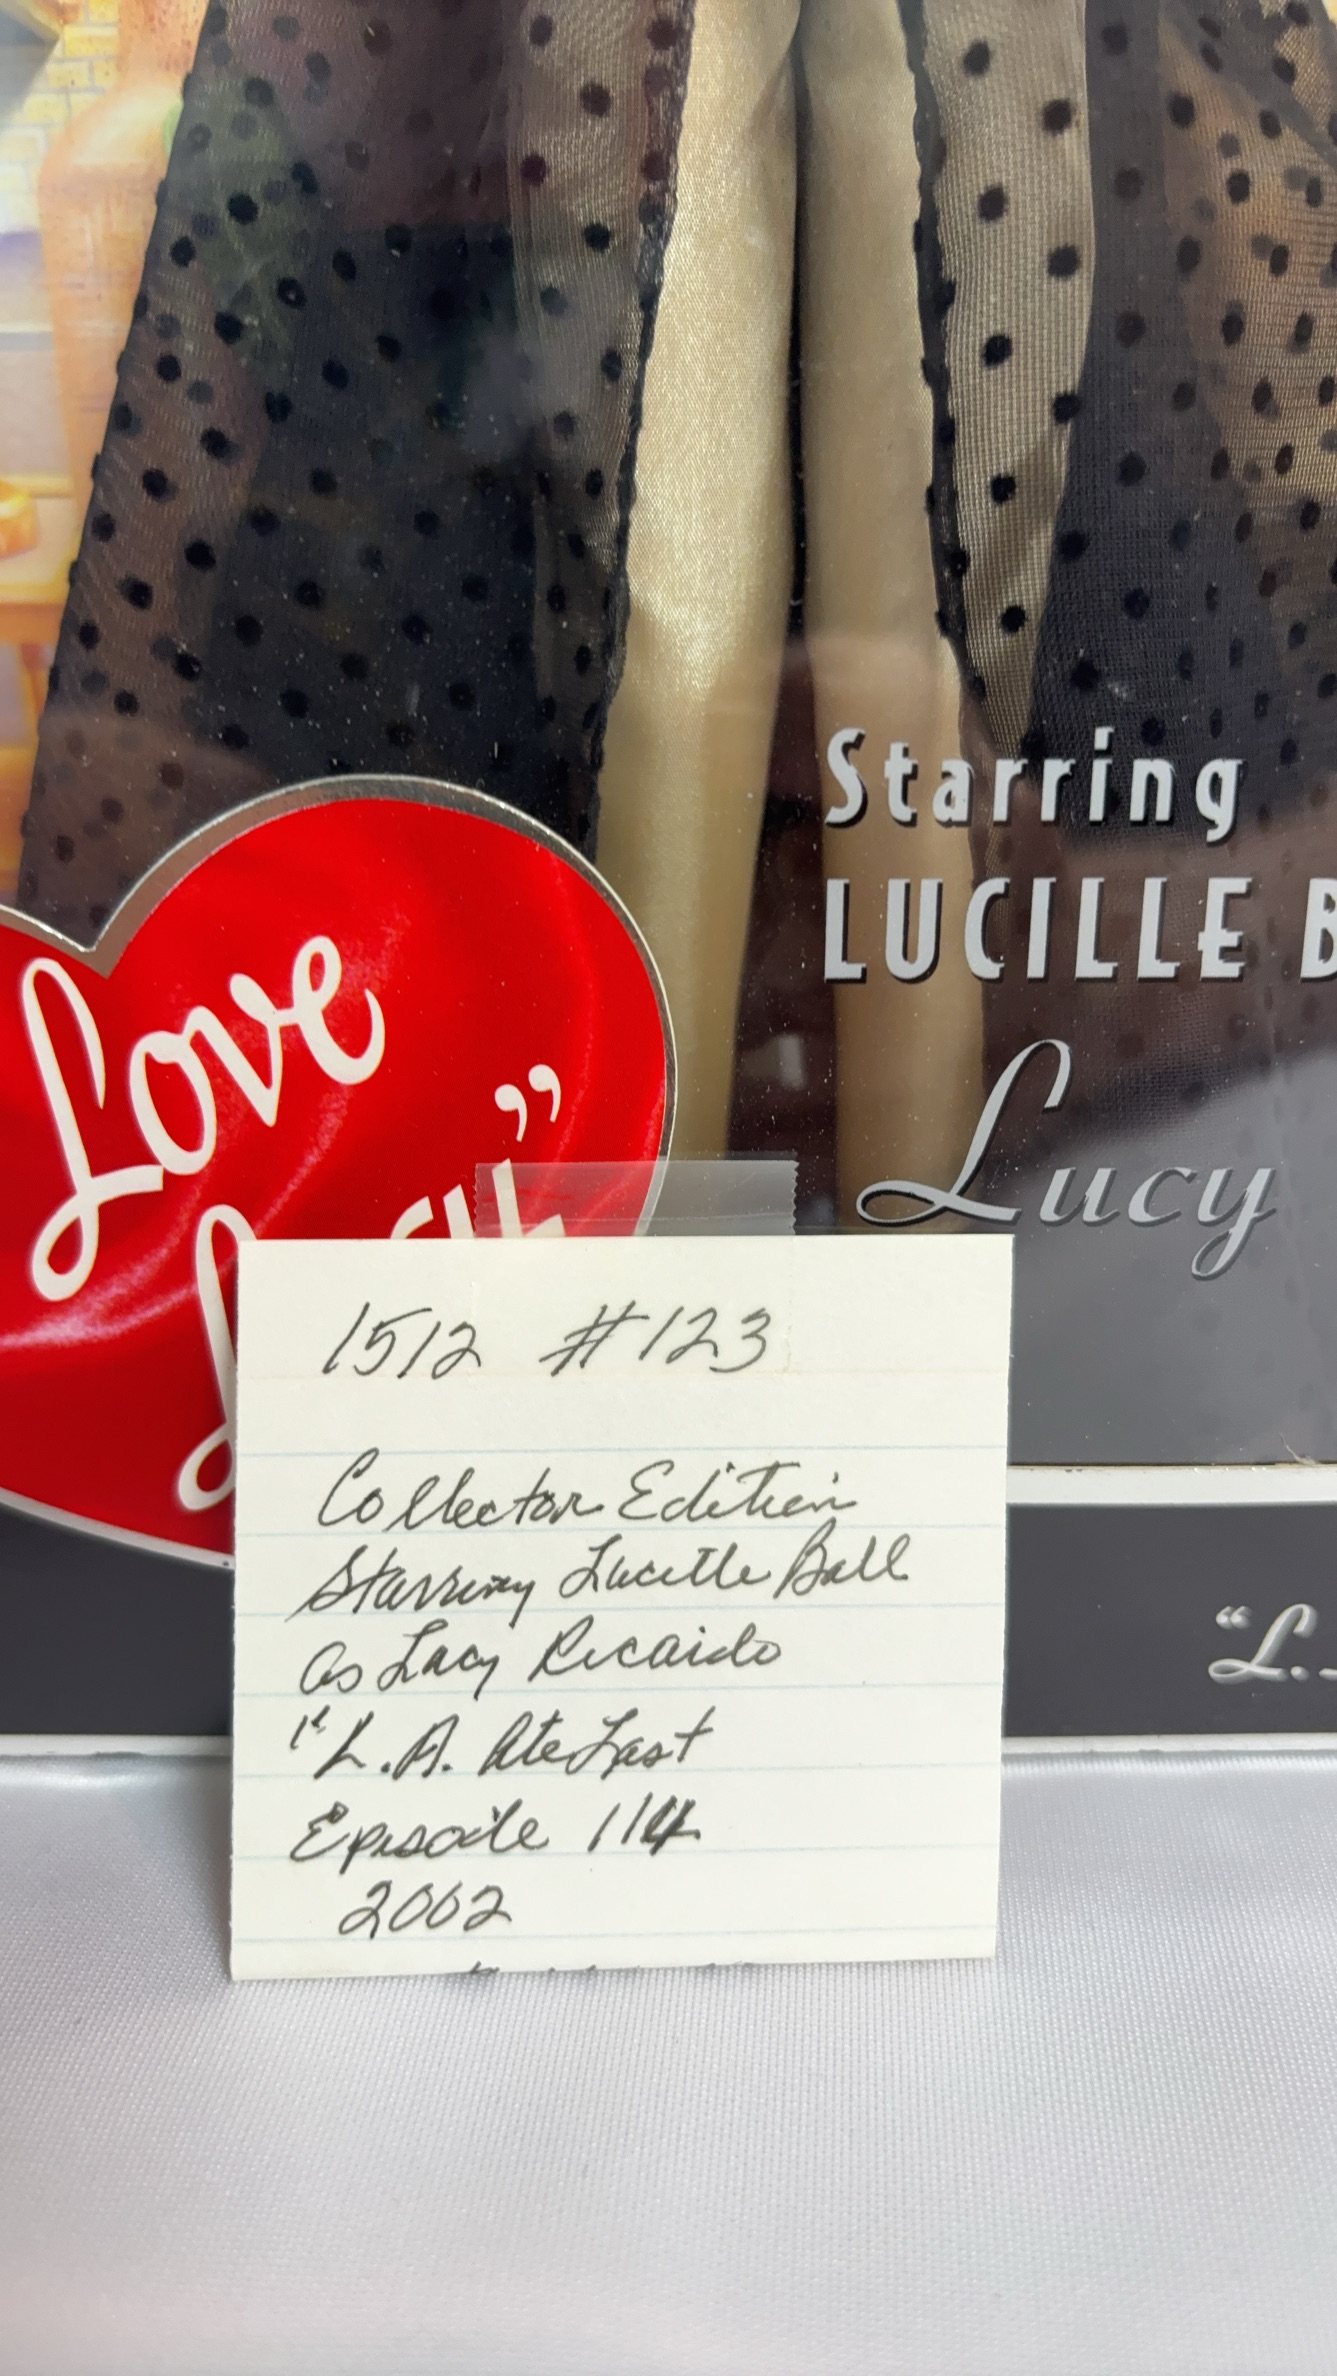 Starring
LUCILLE B
Lucy
Love
”
1512 #123
Collector Edition
Starring Lucille Ball
as Lucy Ricardo
"L.A. At Last
Episode 114
2002
“L.